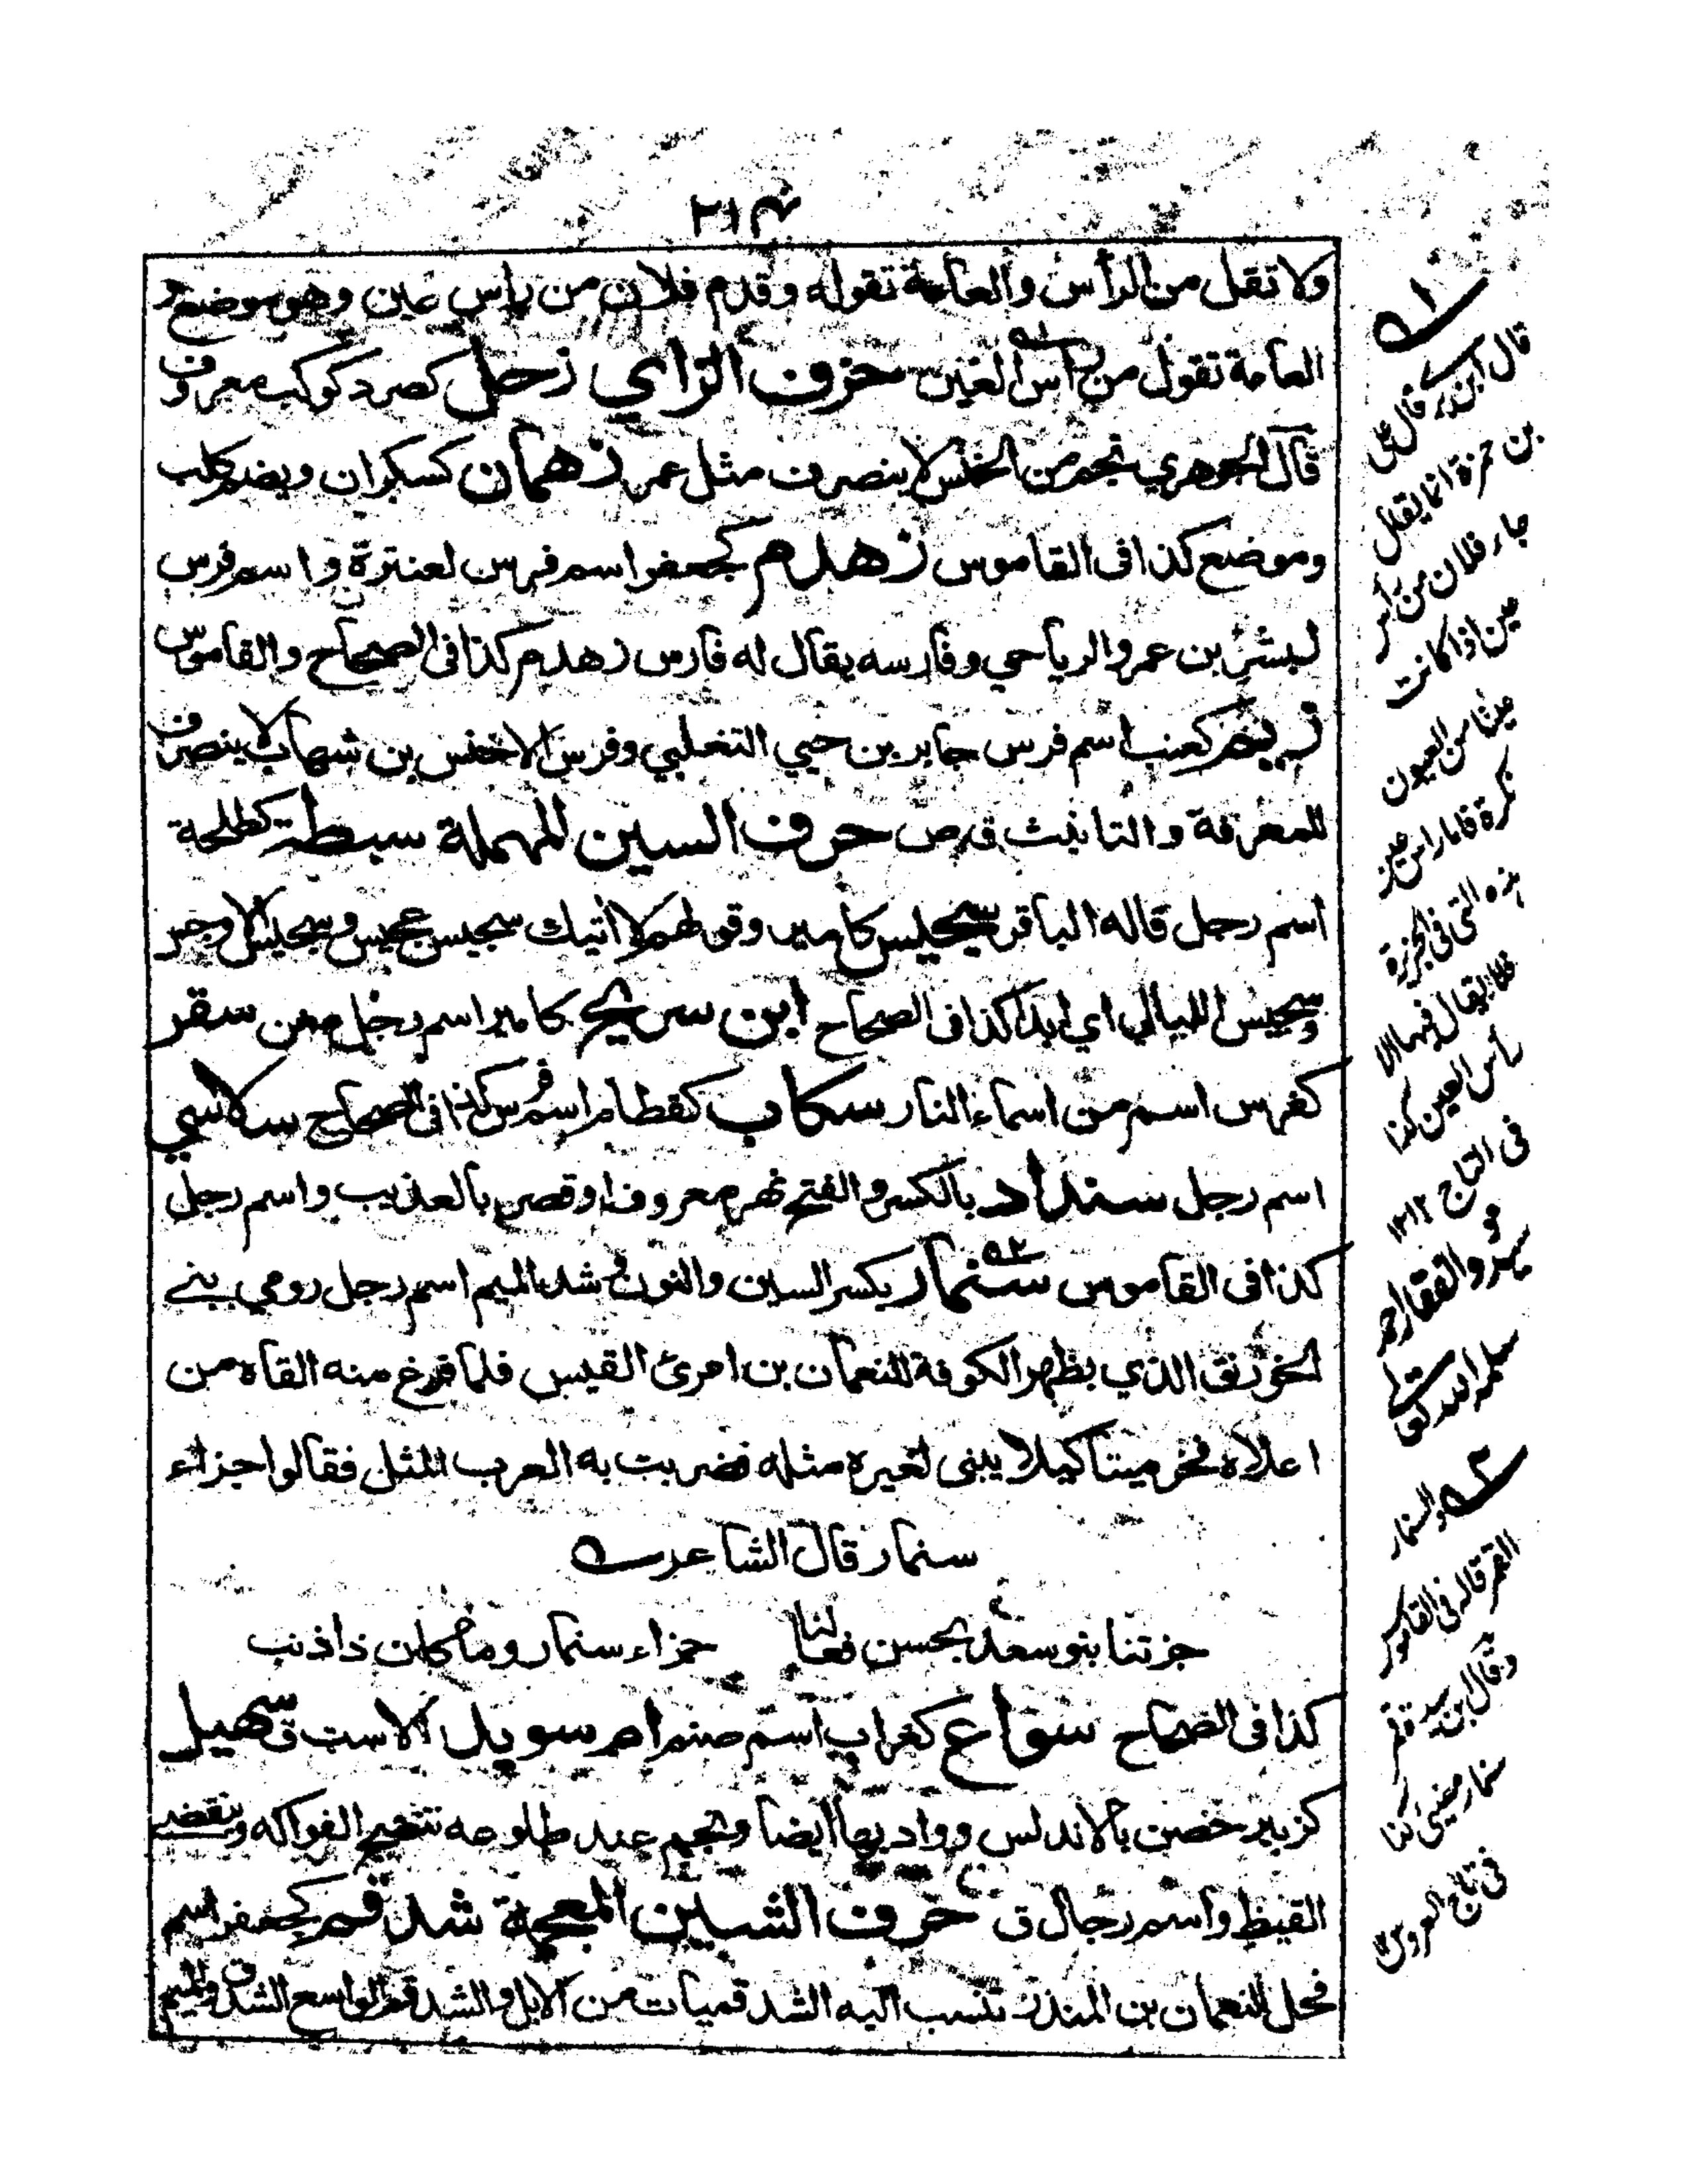 ٢١٤
ولا تقل من الرأس والعامة تقوله وقدم فلان من رأس عين وهو موضع و
العامة تقول من رأس العين حرف الزاي زحل كصرد كوكب معروف
قال الجوهري نجم من الخنس لا ينصرف مثل عمر زهمان كسكران ويضم كلب
وموضع كذا فى القاموس زهدم كجعفر اسم فرس لعنترة واسم فرس
لبشر بن عمرو الرياحي وفارسه يقال له فارس زهدم كذا فى الصحاح والقاموس
زيم كعنب اسم فرس جابر بن حيي التغلبي وفرس الاخنس بن شهاب لا ينصرف
للمعرفة والتانيث ق ص حرف السين المهملة سبطة كطلحة
اسم رجل قاله الباقر سجيس كامير وقولهم لا اتيك سجيس عجيس وسجيس الاوجس
وسجيس الليالي اي ابدا كذا فى الصحاح ابن سريج كامير اسم رجل مغن سقر
كفرس اسم من اسماء النار سكاب كقطام اسم فرس كذا فى الصحاح سلاسي
اسم رجل سنداد بالكسر والفتح نهر معروف او قصر بالعذيب واسم رجل
كذا فى القاموس سنمار بكسر السين والنون وشد الميم اسم رجل رومي بنے
الخورنق الذي بظهر الكوفة للنعمان بن امرئ القيس فلما فرغ منه القاه من
اعلاه فخر ميتا كيلا يبنى لغيره مثله فضربت به العرب المثل فقالوا جزاء
سنمار قال الشاعر
جزتنا بنو سعد بحسن فعالنا جزاء سنمار وما كان ذا ذنب
كذا فى الصحاح سواع كغراب اسم صنم ام سويد الاست ق سهيل
كزبير حصن بالاندلس وواد بها ايضا ونجم عند طلوعه تنضج الفواكه وينقضي
القيظ واسم رجال ق حرف الشين المعجمة شدقم كجعفر اسم
فحل للنعمان بن المنذر تنسب اليه الشدقميات من الابل والشدقم الواسع الشدق والميم
١
قال ابن بري قال على
بن حمزة انما يقال
جاء فلان من رأس
عين اذا كانت
عينا من العيون
نكرة فاما راس عين
هذه التى فى الجزيرة
فلا يقال فيها الا
رأس العين كذا
فى التاج ١٢
سيد ذو الفقار احمد
سلمه الله تعالى
٢ والسنمار
القمر قاله فى القاموس
وقال ابن سيده قمر
سنمار مضيئ كذا
فى تاج العروس